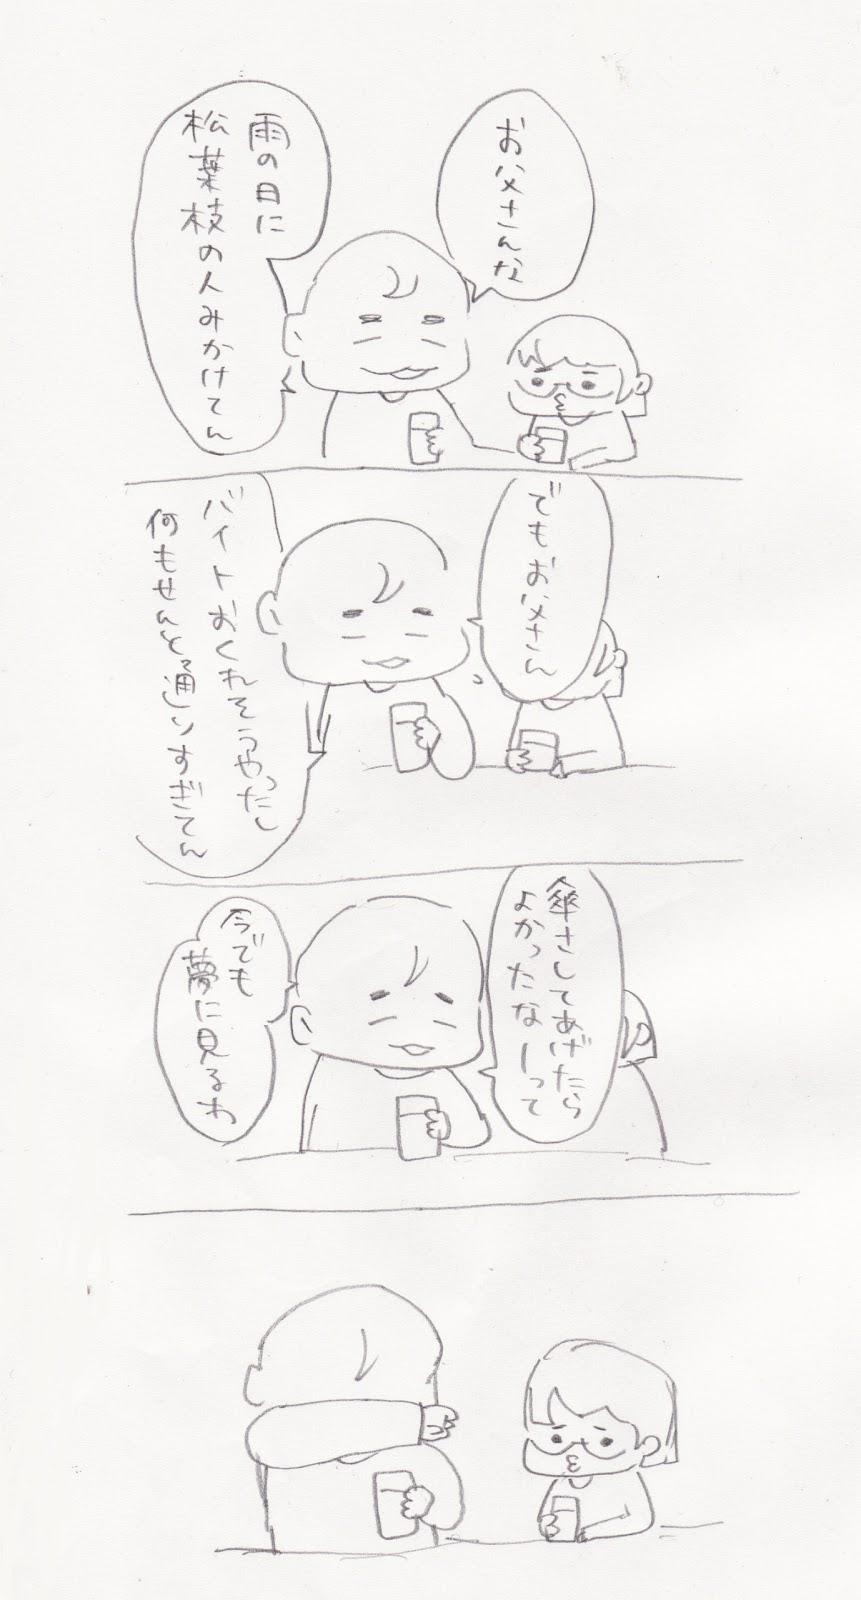 お父さんな
雨の日に
松葉枝の人みかけてん
でもお父さん
バイトおくれそうやったし
何もせんと通りすぎてん
傘さしてあげたら
よかったなーって
今でも
夢に見るわ